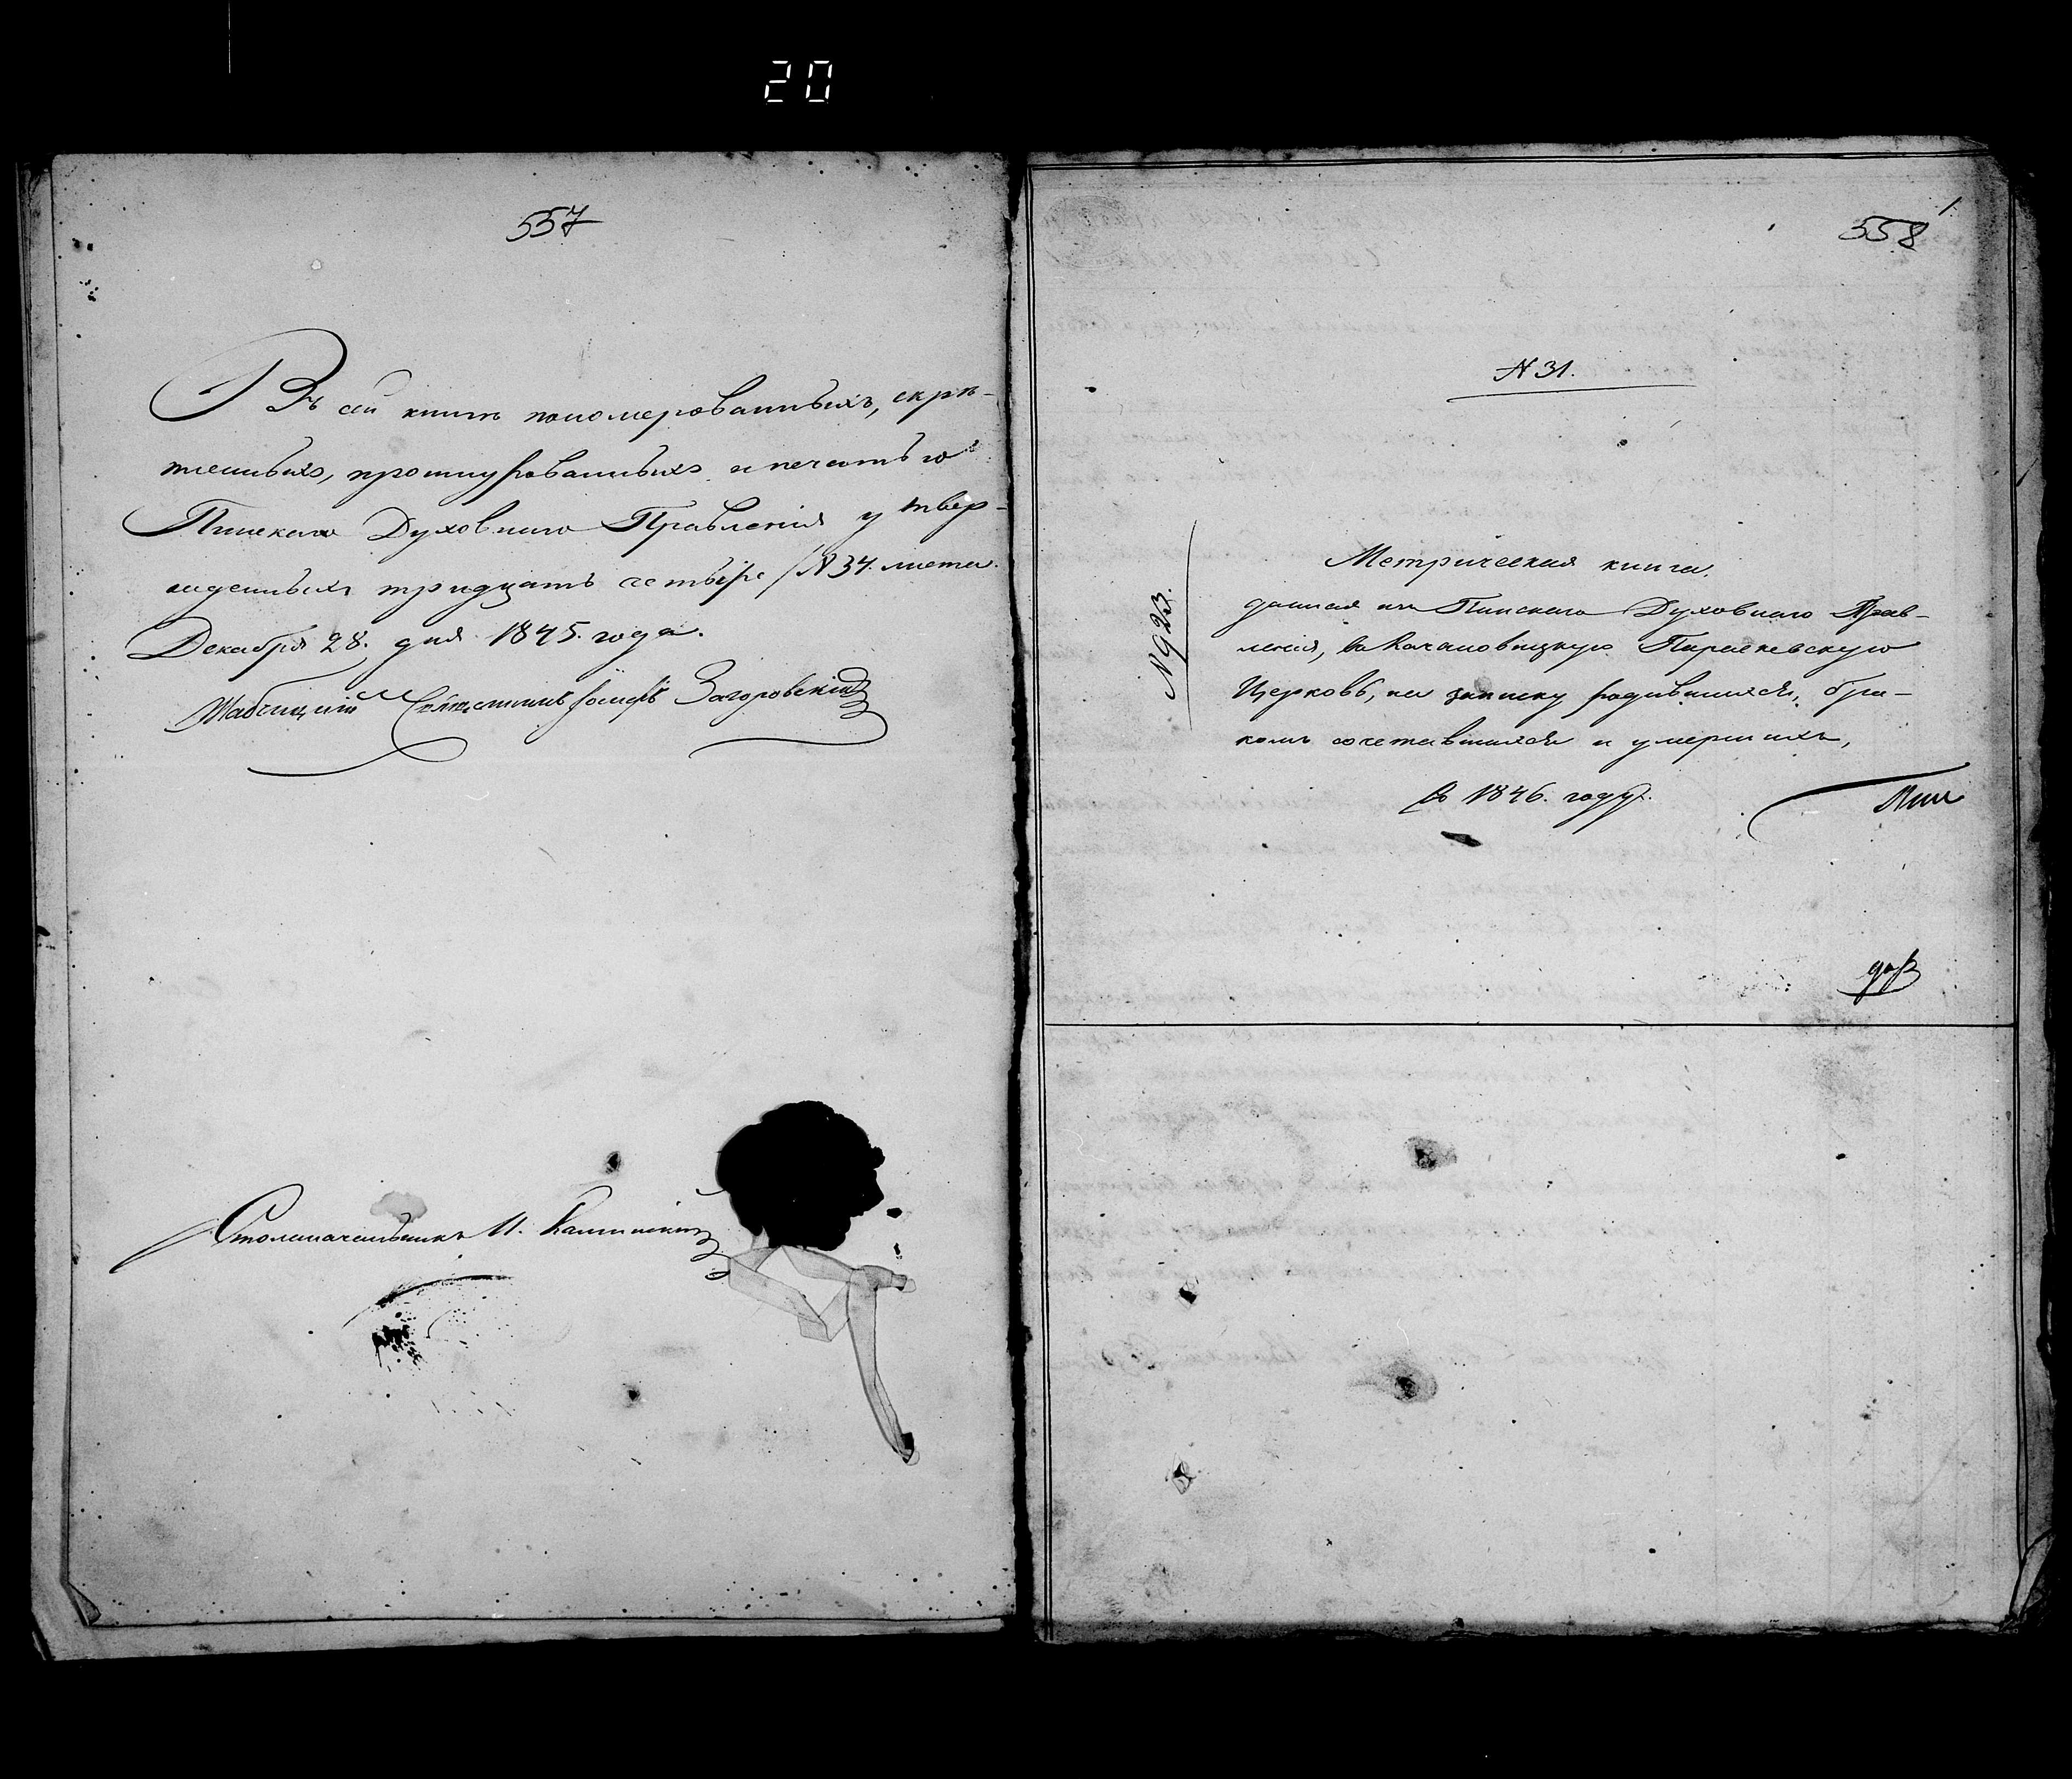 20
557
Въ сей книгѣ пономерованныхъ, скрѣ-
пленныхъ, прошнурованныхъ и печатью
Пинскаго Духовнаго Правленія утвер-
жденныхъ тридцать четыре /№ 34. листа.
Декабря 28. дня 1845. года.
Іосифъ Загоровскій
Столоначальникъ И.
558
1
№ 31.
№ 923.
Метрическая книга,
данная изъ Пинскаго Духовнаго Прав-
ленія, въ Качановицкую Параскевскую
Церковь, на записку родившихся, бра-
комъ сочетавшихся и умершихъ,
въ 1846. году.
Пин